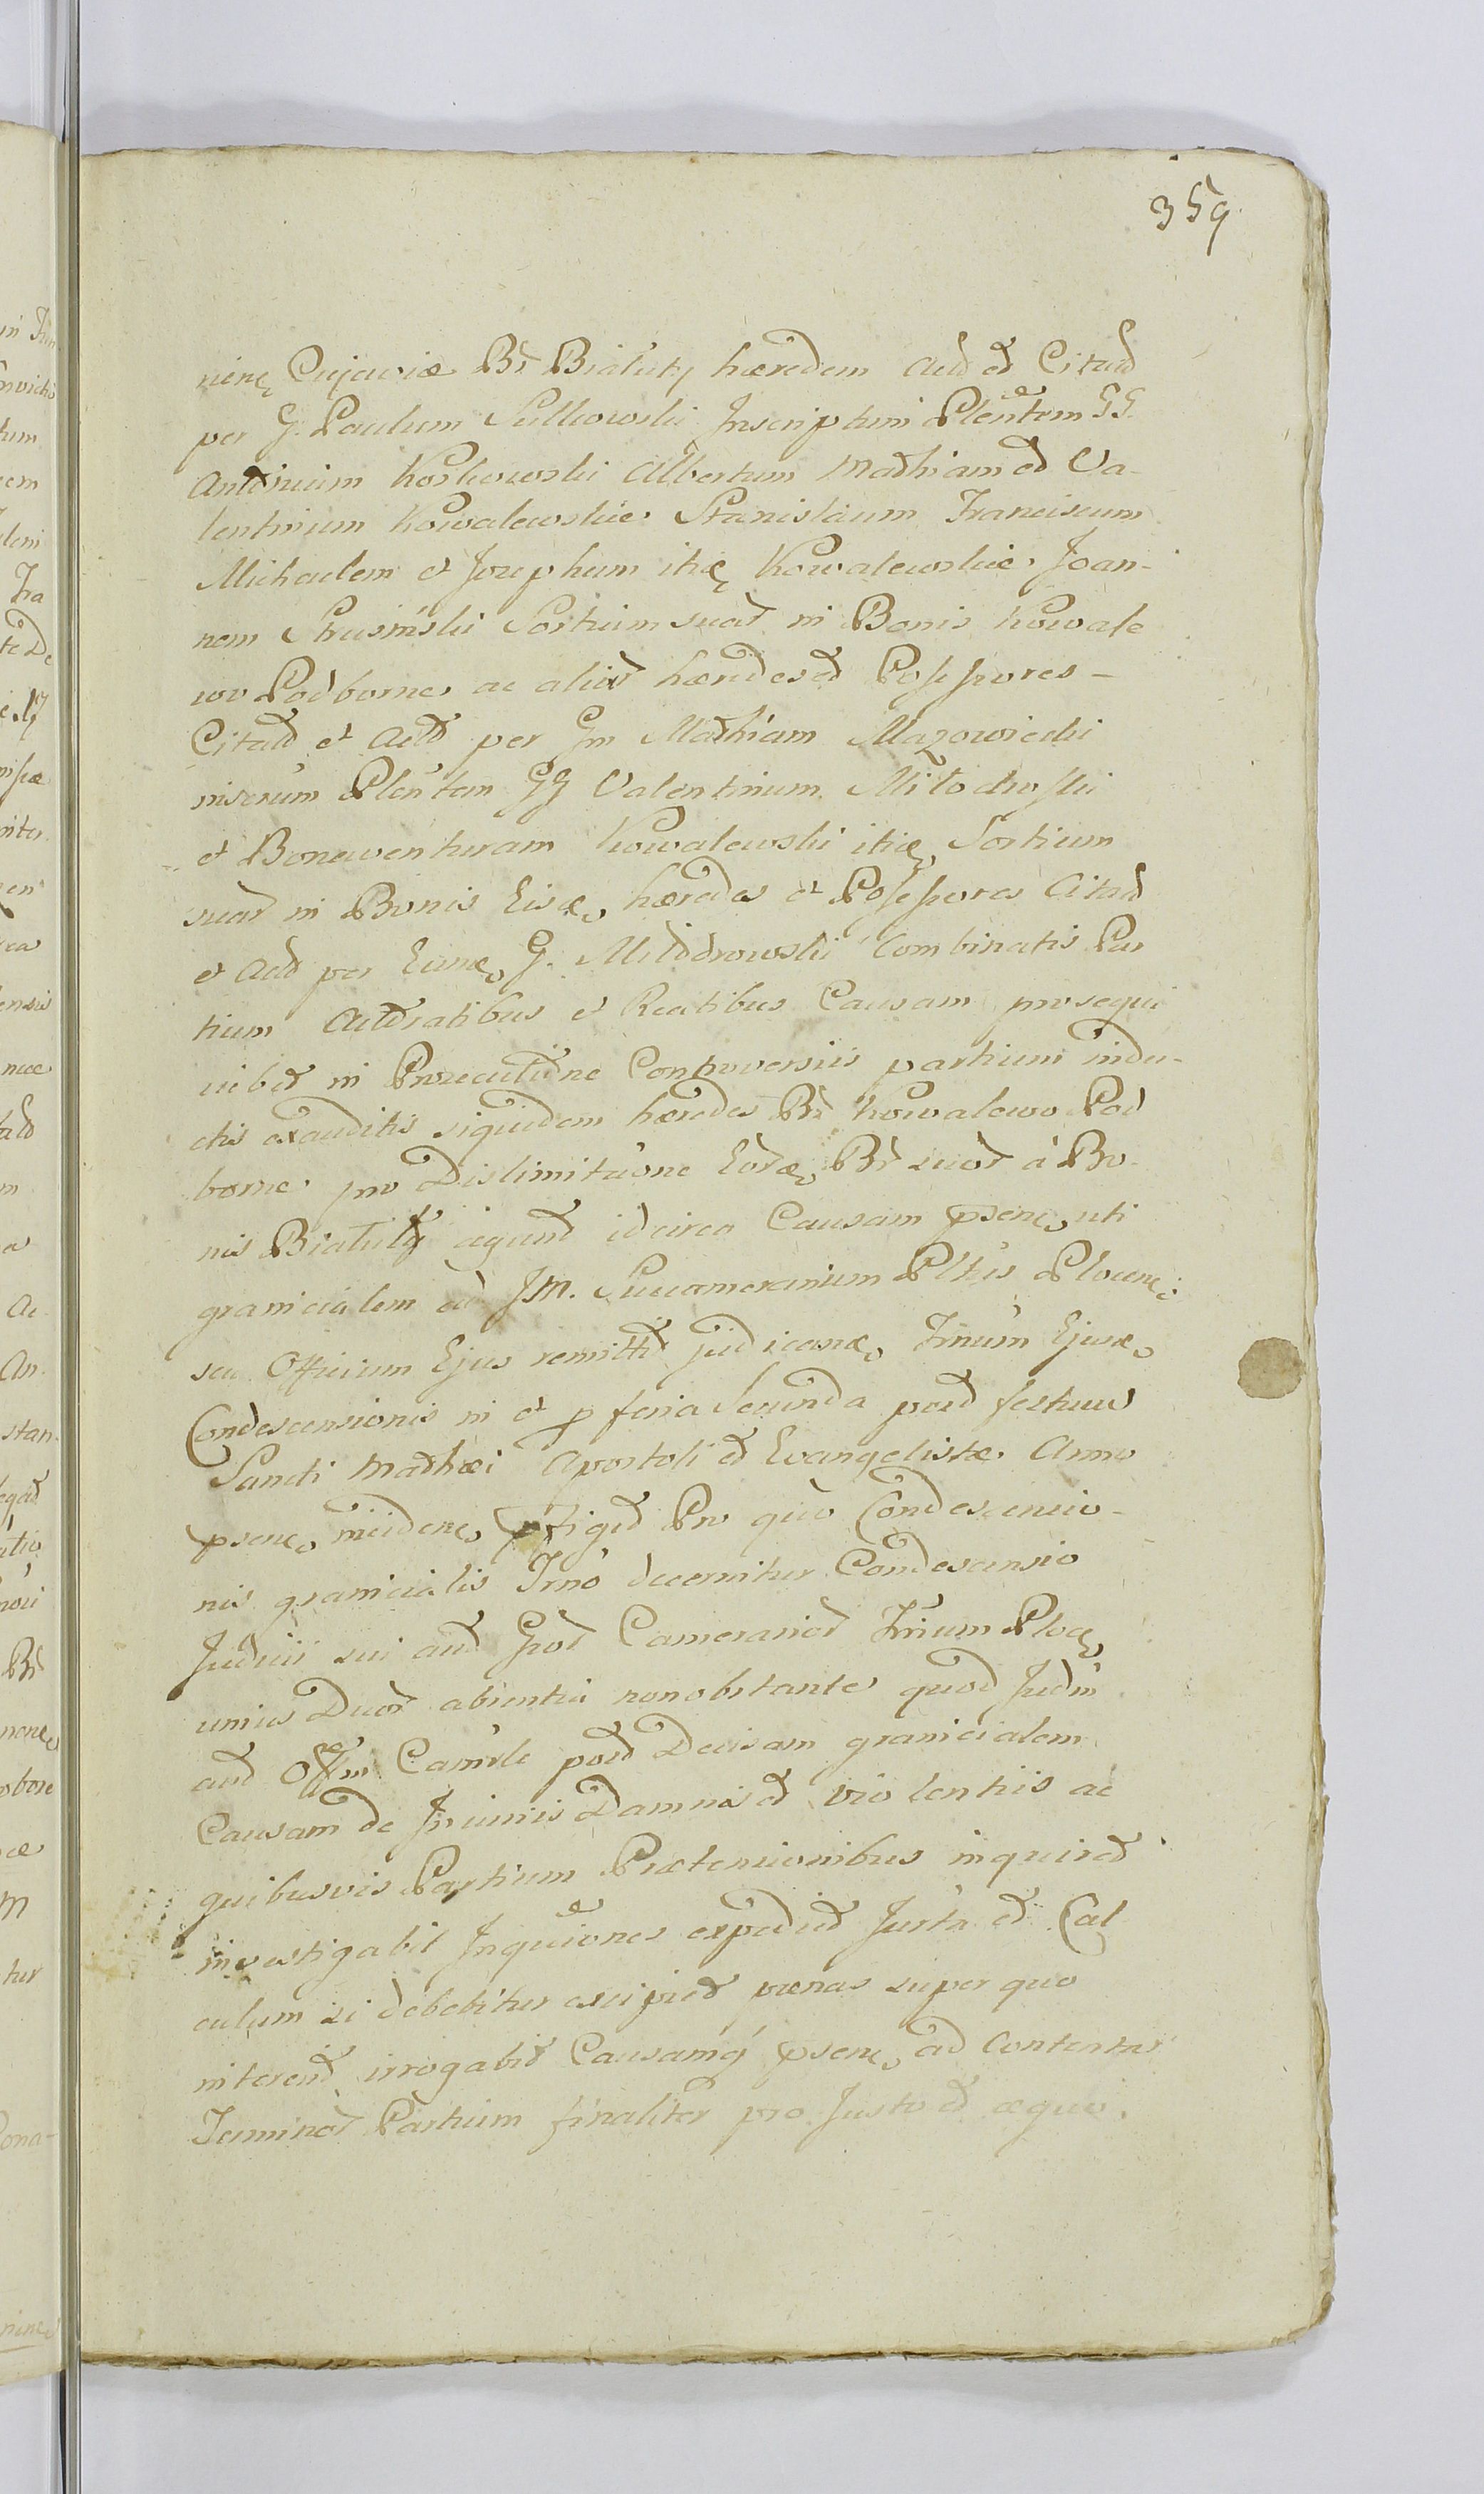 359
nienę Cujaviæ Br Białuty hæredem Actd et Citatd
per G. Paulum Sulkowski Inscriptum Plentem GG.
Antonium Koskowski Albertum Mathiam et Va-
lentinum Kowalewskie Stanislaum Franciscum
Michaelem et Josephum itię Kowalewskie Joan-
nem Strusinski Sortium suar in Bonis Kowale
wo Podborne ac aliar hæredes et Possessores -
Citatd et Actd per Gm Mathiam Mazowiecki
inscrum Plentem GG Valentinum Milodroski
et Bonaventuram Kowalewski itię Sortium
suar in Bonis Eisdę hæredes et Possessores Citatd
et Actd per Eundę G. Milodrowski Combinatis Par
tium Actoratibus et Reatibus Causam prosequi
iubet in Prosecutione Controversiis partium indu-
ctis exauditis siquidem hæredes Br Kowalewo Pod
borne pro Dislimitatione Eordę Br suor à Bo-
nis Białuty agunt idcirco Causam psenę uti
granicialem ad JM. Succamerarium Pltus Plocenę
seu Officium Ejus remittit judicandę Tmum Ejusdę
Condescensionis in et p feria Secunda post festum
Sancti Mathæi Apostoli et Evangelistæ Anno
psenę incidenę pfigit Pro quo Condescensio-
nis granicialis Tmo decernitur Condescensio
Judicii sui aut Gror Camerarior Trium Plocę
unius Duor absentia nonobstante quod Judm
aut Offm Camrle post Decisam granicialem
Causam de Injuriis Damnis et violentiis ac
quibusvis Partium Prætensionibus inquiret
investigabit Inquiones expediet Jurta et Cal
culum si debebitur excipiet pœnas super quo
intererit irrogabit Causamq psenę ad Contentar
Terminor Partium finaliter pro Justo et æquo.